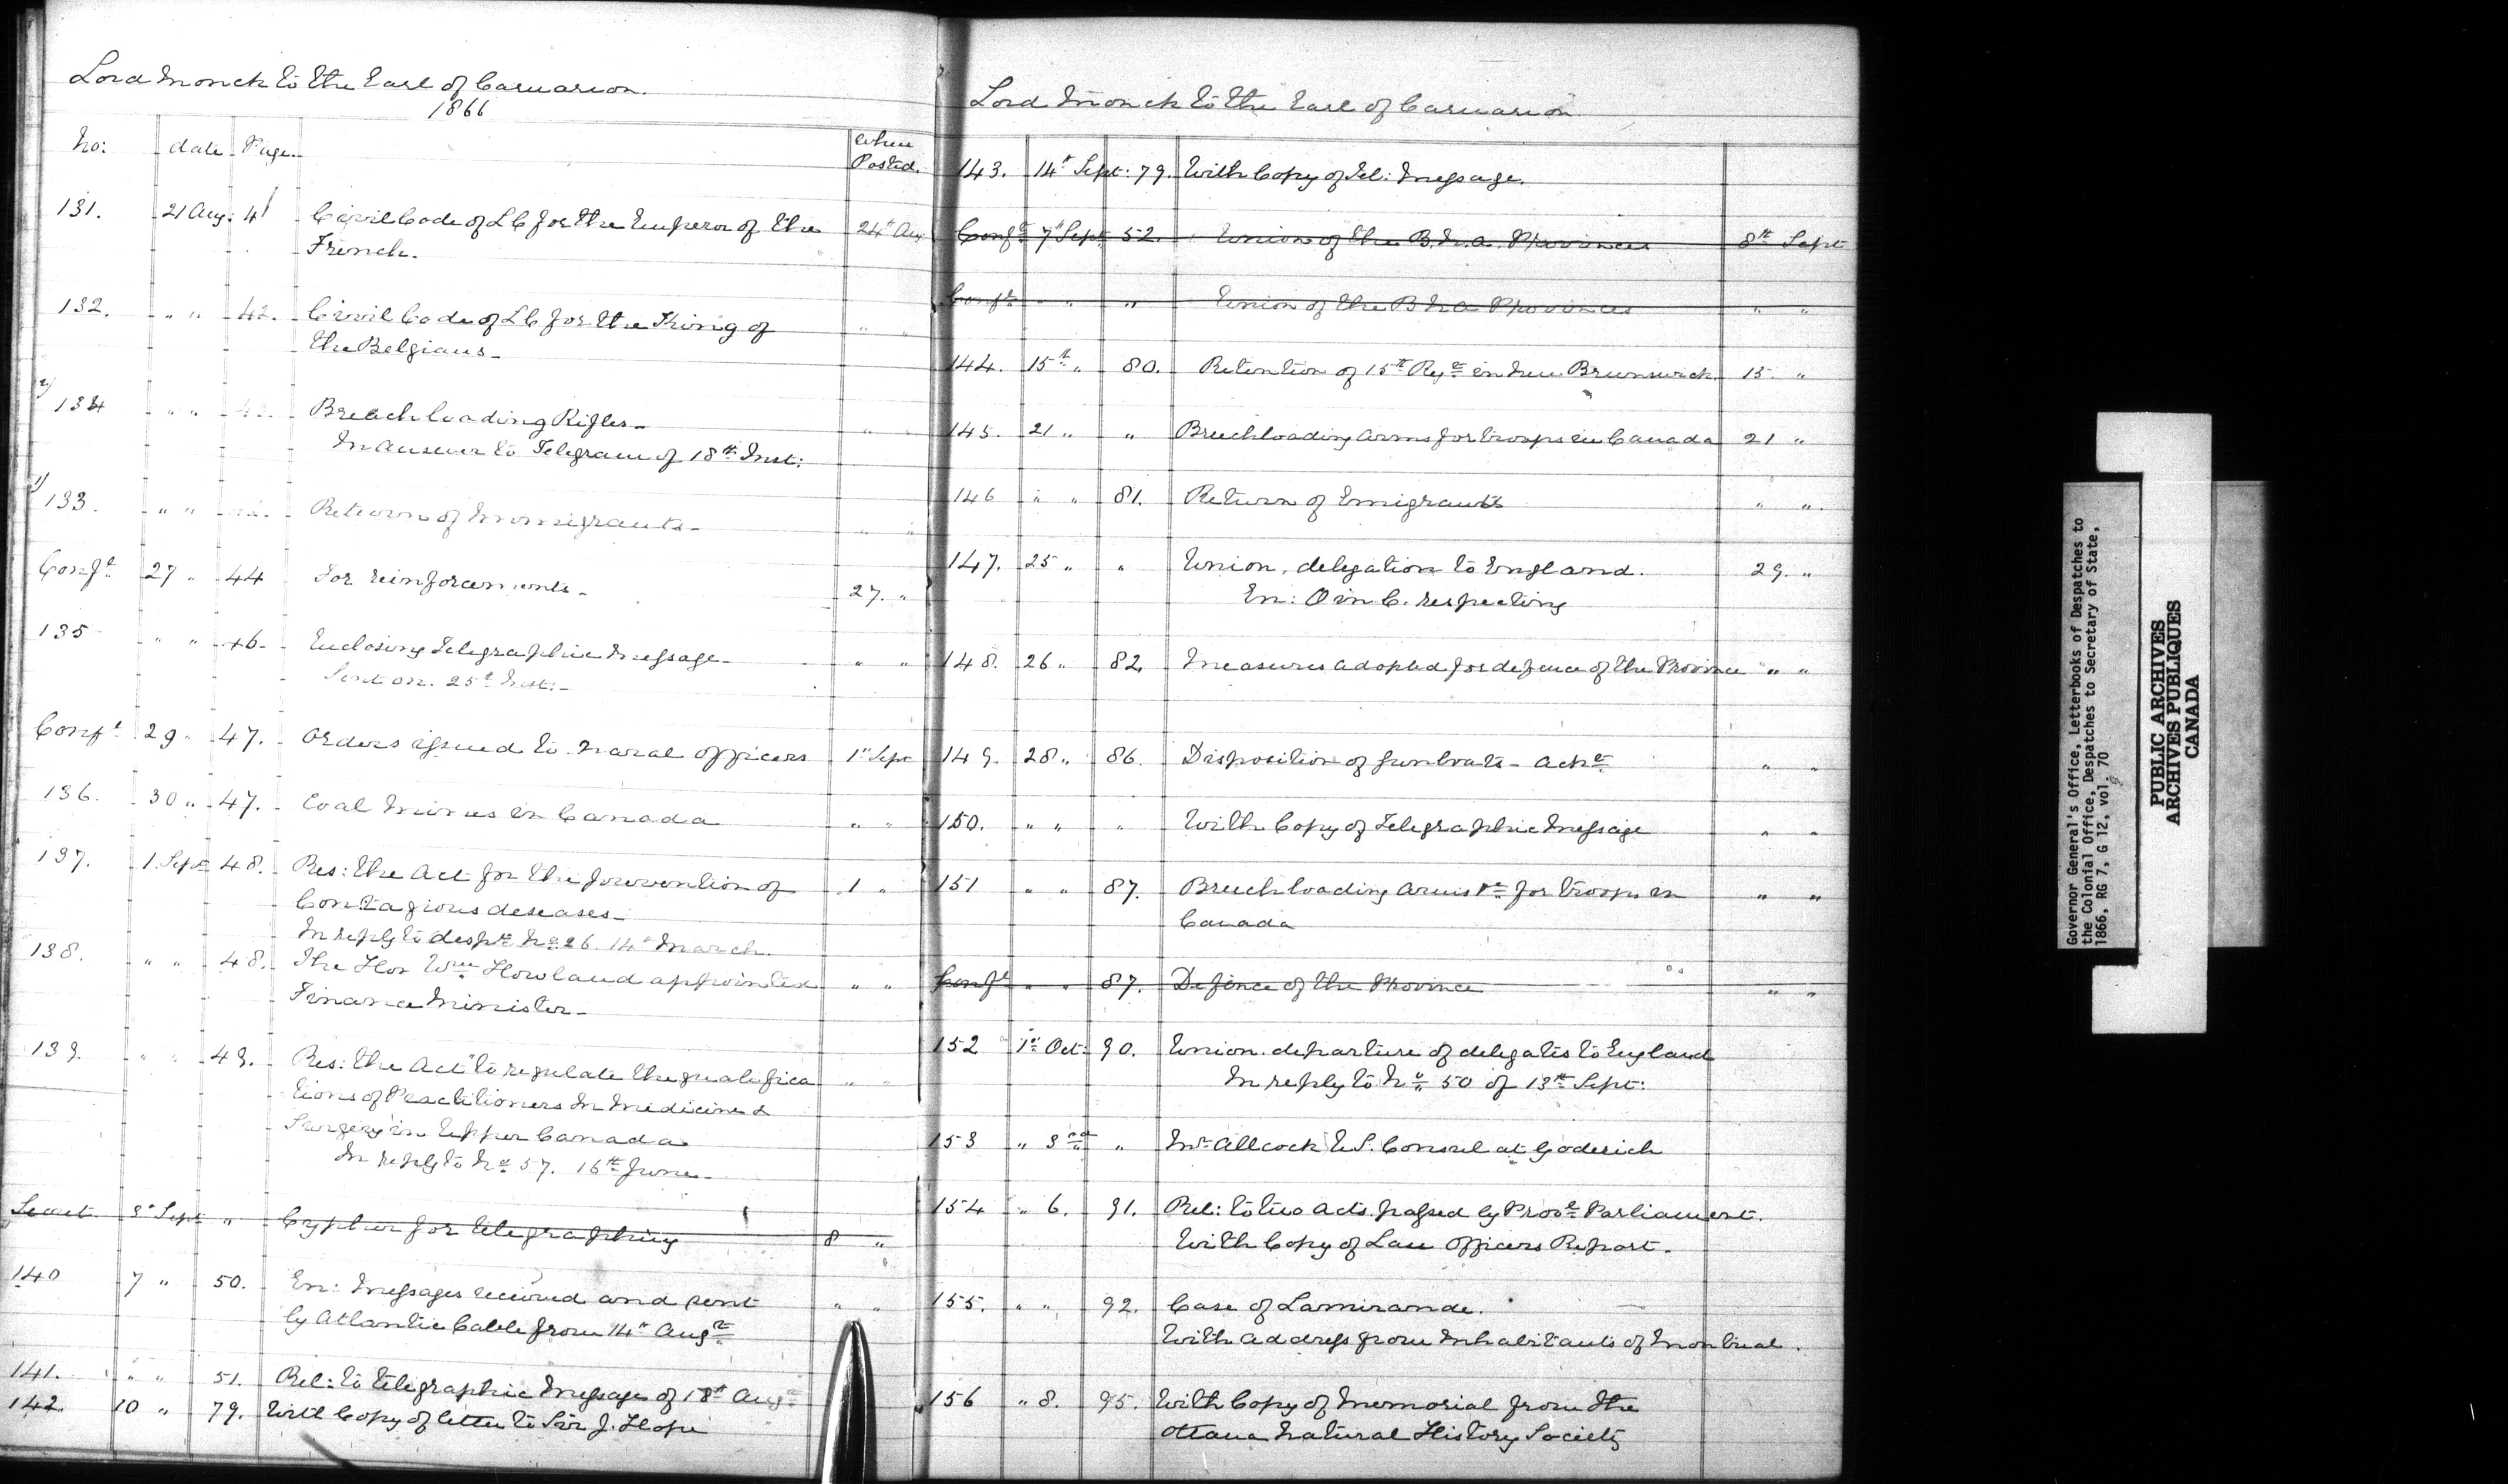 Lord Monck to the Earl of Carnarvon.
1866
No: date Page. When Posted.
131. 21 Aug: 41 Civil Code of L C for the Emperor of the 24th Aug
French.
132. " " 42. Civil Code of L C for the King of " "
the Belgians_
2) 134 " " Breach loading Rifles_ " "
In answer to Telegram of 18th Inst:
1) 133. " " Return of Immigrants_ " "
Confl 27 " 44 For reinforcements_ 27. "
135 " " 46. Enclosing Telegraphic Message_ " "
Sent on 25t Inst:_
Confl 29 " 47. Orders issued to Naval Officers 1st Sept
136. 30 " 47. Coal Mines in Canada " "
137. 1. Sept 48. Res: the Act for the prevention of 1 "
Contagious deseases_
In reply to despth No 26. 14th March.
138. " " 48. The Hon Wm Howland appointed " "
Finance Minister_
139. " " 49. Res: the Act "to regulate the qualifica " "
tions of Practitioners in Medicine &
Surgery in Upper Canada
In reply to No 57. 16th June_
Secret. 3d Sept " Cypher for telegraphing 8 "
140 7 " 50. En: Messages received and sent " "
by Atlantic Cable from 14th Augst
141. " " 51. Rel: to telegraphic Message of 18th Augst
142. 10 " 79. With Copy of letter to Sir J. Hope
Lord Monck to the Earl of Carnarvon
143. 14th Sept: 79. With Copy of Tel: Message.
Confl 7th Sept 52. Union of the B.N.A. Provinces 8th Sept
Confl " " " Union of the B N A Provinces " "
144. 15th " 80. Retention of 15th Regt in New Brunswick 15. "
145. 21 " " Breechloading Arms for troops in Canada 21 "
146 " " 81. Return of Emigrants " "
147. 25 " " Union, delegation to England. 29. "
En: O in C. respecting
148. 26 " 82. Measures adopted for defence of the Province " "
149. 28 " 86. Disposition of Gunboats_ Ackd " "
150. " " " With Copy of Telegraphic Message " "
151 " " 87. Breechloading Arms &c for troops in " "
Canada
Confl " " 87. Defence of the Province " "
152 1st Oct: 90. Union. departure of delegates to England
In reply to No 50 of 13th Sept:
153 " 3rd " Mr Allcock U.S. Consul at Goderich
154 " 6. 91. Rel: to two Acts passed by Provl Parliament.
With Copy of Law Officers Report.
155. " " 92. Case of Lamirande.
With address from Inhabitants of Montreal.
156 " 8. 95. With Copy of Memorial from the
Ottawa Natural History Society
Governor General's Office, Letterbooks of Despatches to
the Colonial Office, Despatches to Secretary of State,
1866, RG 7, G 12, vol. 70
PUBLIC ARCHIVES
ARCHIVES PUBLIQUES
CANADA